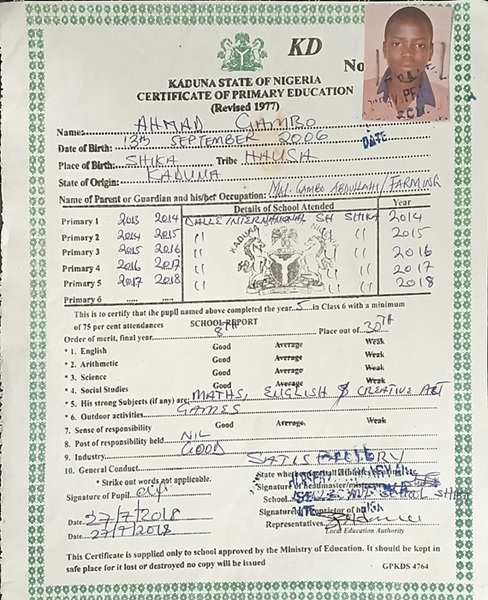 KD
No
KADUNA STATE OF NIGERIA
CERTIFICATE OF PRIMARY EDUCATION
(Revised 1977)
Name: AHMAD GAMBO
Date of Birth: 13th SEPTEMBER 2006 DATE
Place of Birth: SHIKA Tribe HAUSA
State of Origin: KADUNA
Name of Parent or Guardian and his/her Occupation: Mal. GAMBO ABDULLAHI / FARMING
Details of School Attended Year
Primary 1 2013 2014 INTERNATIONAL SH SHIKA 2014
Primary 2 2014 2015 " " " 2015
Primary 3 2015 2016 " " " 2016
Primary 4 2016 2017 " " " 2017
Primary 5 2017 2018 " " " 2018
Primary 6
KADUNA NIGERIA
This is to certify that the pupil named above completed the year 5 in Class 6 with a minimum
of 75 per cent attendances
SCHOOL REPORT
Order of merit, final year 8th Place out of 30TH
Good Average Weak
* 1. English Good Average Weak
* 2. Arithmetic Good Average Weak
* 3. Science Good Average Weak
* 4. Social Studies Good Average Weak
* 5. His strong Subjects (if any) are MATHS, ENGLISH & CREATIVE ART
* 6. Outdoor activities GAMES
* 7. Sense of responsibility Good Average Weak
* 8. Post of responsibility held NIL
9. Industry GOOD
10. General Conduct SATISFACTORY
* Strike out words not applicable.
Signature of Pupil
Signature of headmaster/
School
Date 27/7/2018
Representatives
Date 27/7/2018
Local Education Authority
This Certificate is supplied only to school approved by the Ministry of Education. It should be kept in
safe place for it lost or destroyed no copy will be issued
GPKDS 4764